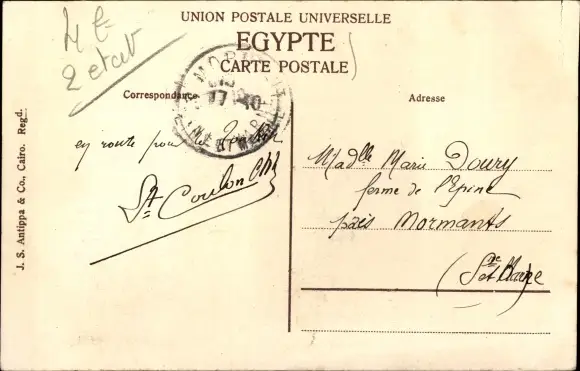 UNION POSTALE UNIVERSELLE
EGYPTE
CARTE POSTALE
2 etat
Correspondance
Adresse
J. S. Antippa & Co., Cairo. Regd.
en route pour
St Coulon
Madlle Marie Doury
ferme de l'Epine
près Mormants
(Sne et Marne)